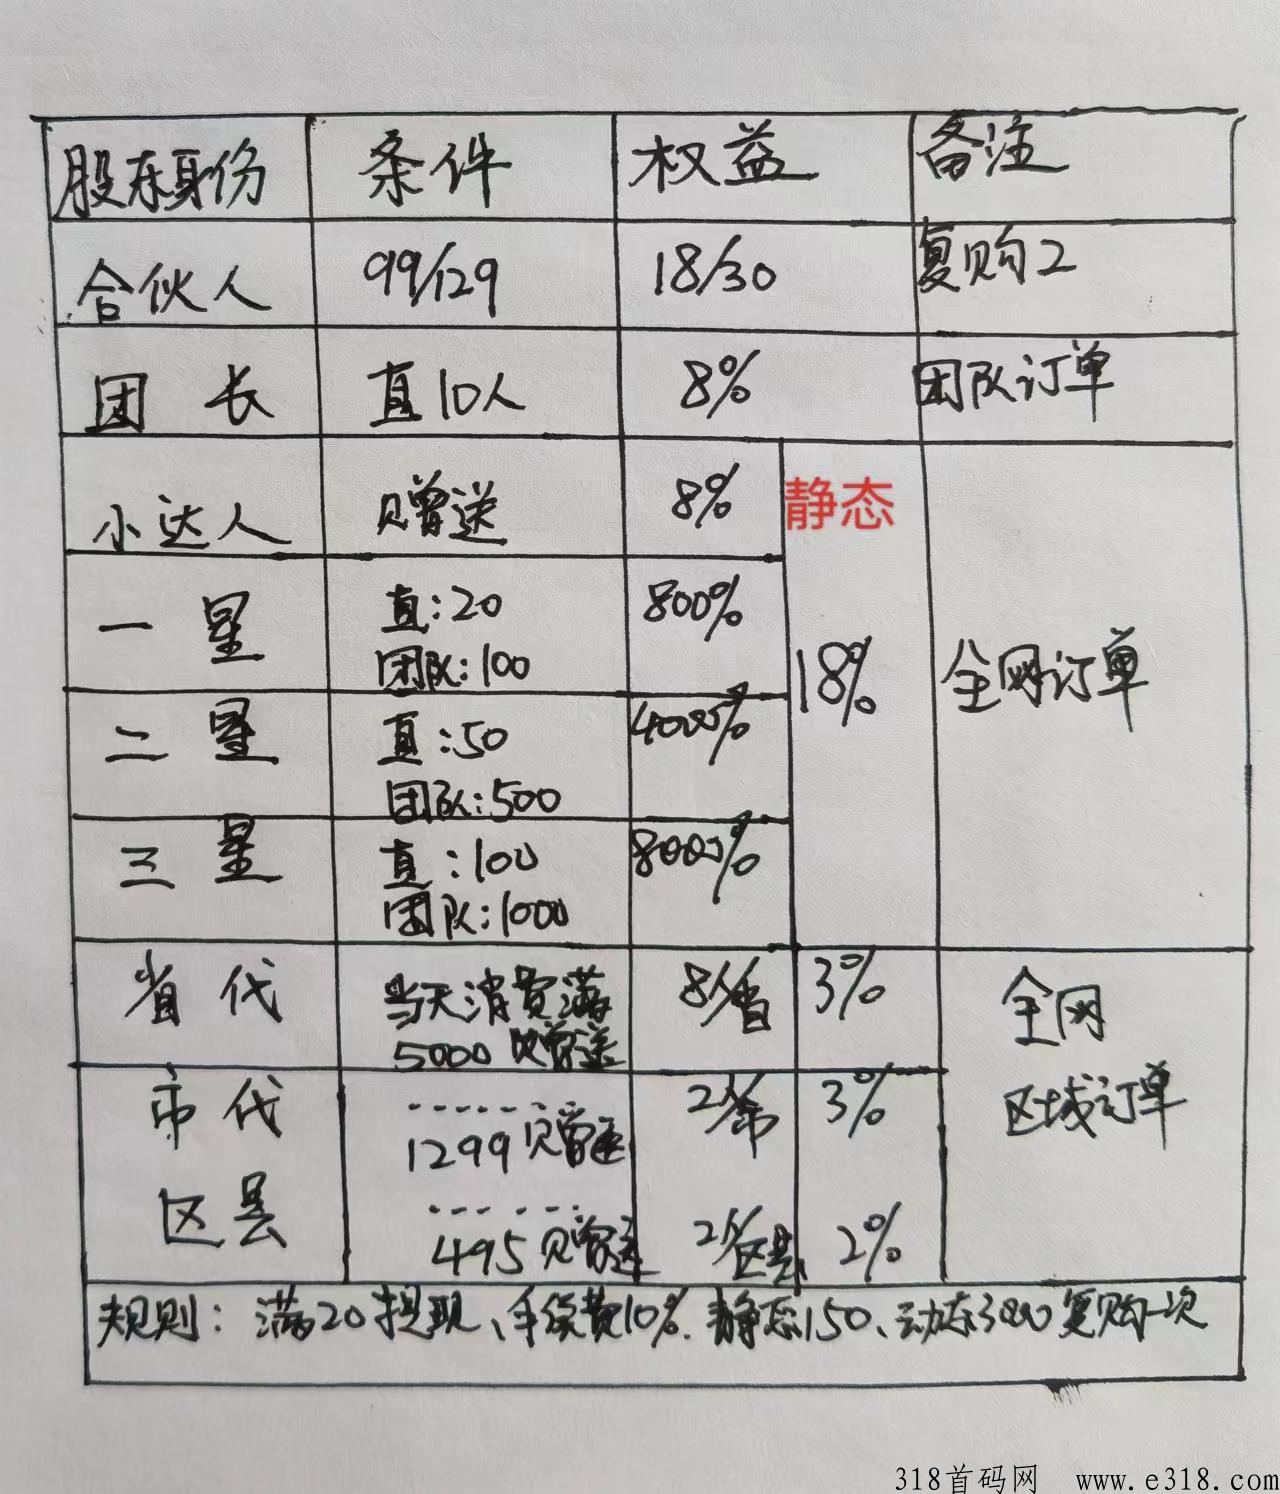 股东身份 条件 权益 备注
合伙人 99/129 18/30 复购2
团长 直10人 8% 团队订单
小达人 赠送 8% 静态
一星 直:20 800%
团队:100
18% 全网订单
二星 直:50 4000%
团队:500
三星 直:100 8000%
团队:1000
省代 当天消费满 8个/省 3% 全网
5000赠送
市代 ------ 2个/市 3% 区域订单
1299赠送
区县 ------ 2个/区县 2%
495赠送
规则: 满20提现、手续费10%. 静态150、动态3800复购一次
318首码网 www.e318.com